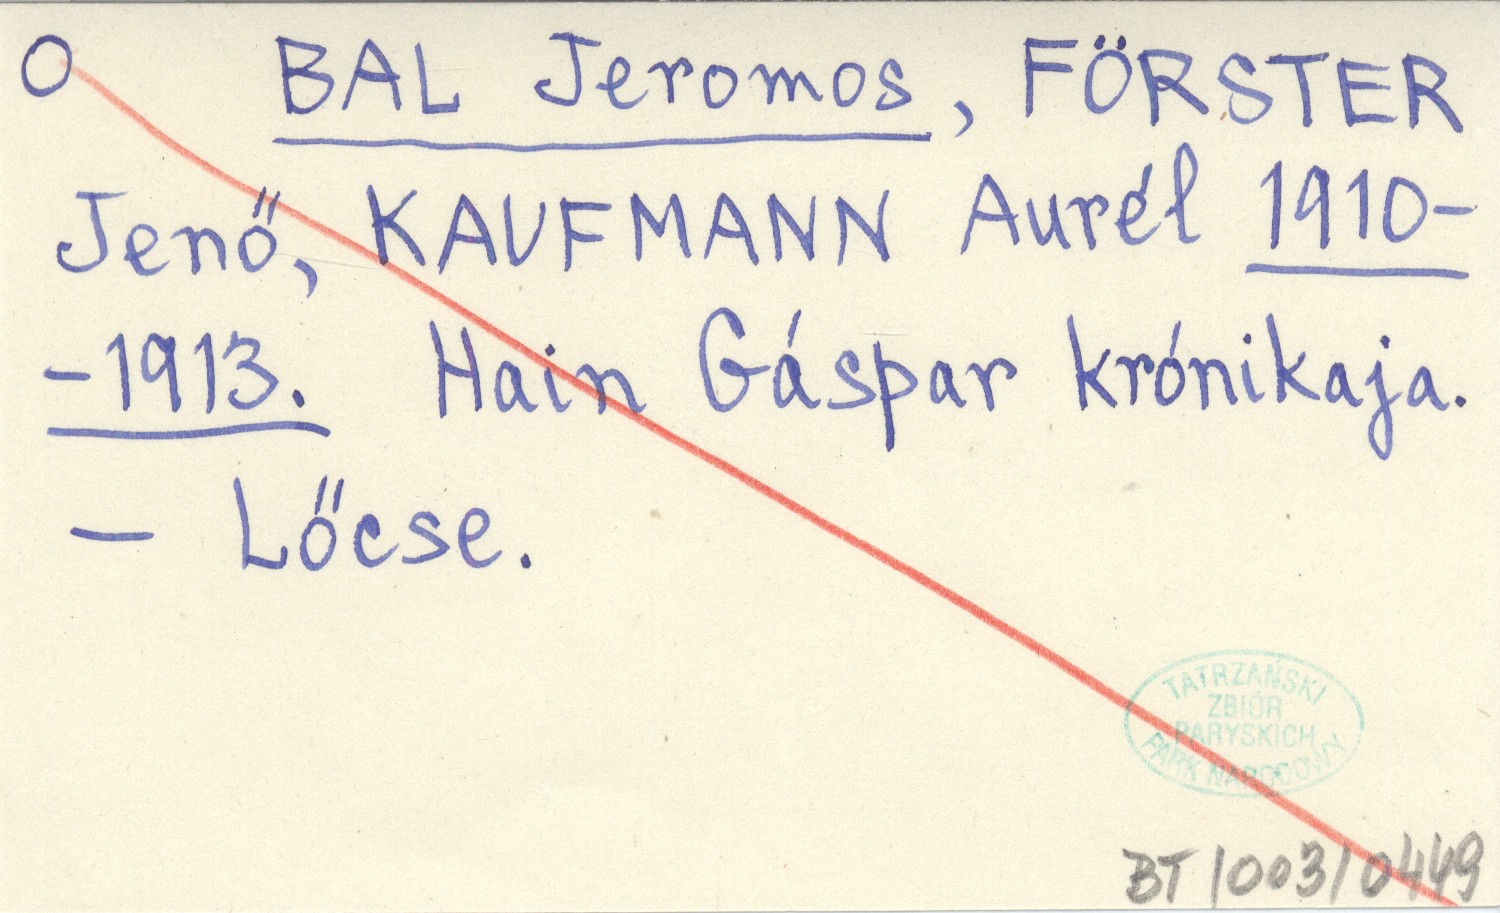 O BAL Jeromos, FÖRSTER
Jenő, KAUFMANN Aurél 1910-
-1913. Hain Gáspár krónikaja.
— Lőcse.
TATRZAŃSKI
ZBIÓR
PARYSKICH
PARK NARODOWY
BT/003/0449